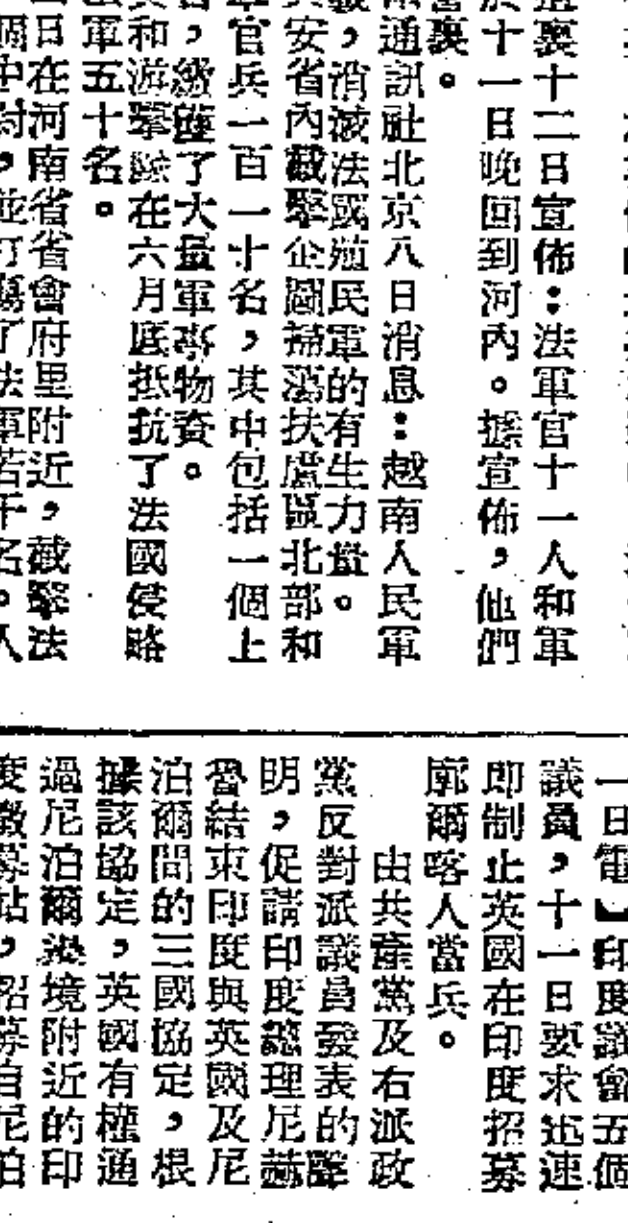 裏十二日宣佈：法軍官十一人和軍
於十一日晚回到河內。據宣佈，他們
裏。
通訊社北京八日消息：越南人民軍
，消滅法國殖民軍的有生力量。
安省內截擊企圖掃蕩扶盧區北部和
官兵一百一十名，其中包括一個上
，繳獲了大量軍事物資。
和游擊隊在六月底抵抗了法國侵略
軍五十名。
日在河南省省會府里附近，截擊法
個中尉，並打傷了法軍若干名。人
一日電】印度議會五個
議員，十一日要求迅速
即制止英國在印度招募
廓爾喀人當兵。
由共產黨及右派政
黨反對派議員發表的聲
明，促請印度總理尼赫
魯結束印度與英國及尼
泊爾間的三國協定，根
據該協定，英國有權通
過尼泊爾邊境附近的印
度徵募站，招募自尼泊